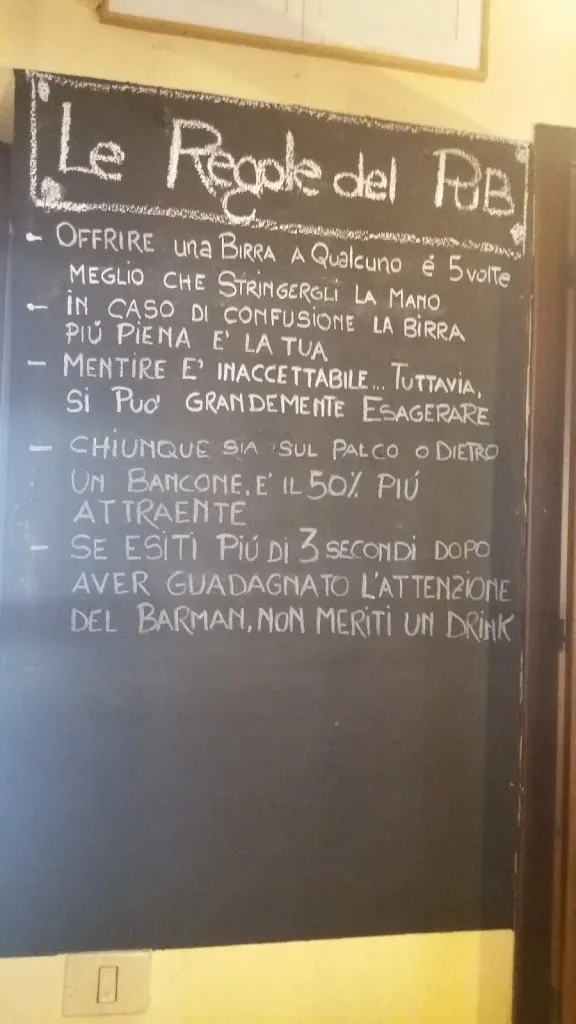 Le Regole del PUB
- OFFRIRE una BIRRA A QUalcUNO é 5 volte
MEGLIO CHE STRINGERGLI LA MANO
- IN CASO DI CONFUSIONE LA BIRRA
PIÚ PIENA E' LA TUA
- MENTIRE E' INACCETTABILE... TUTTAVIA,
SI PUO' GRANDEMENTE ESAGERARE
- CHIUNQUE SIA SUL PALCO O DIETRO
UN BANCONE, E' IL 50% PIÚ
ATTRAENTE
- SE ESITI PIÚ DI 3 SECONDI DOPO
AVER GUADAGNATO L'ATTENZIONE
DEL BARMAN, NON MERITI UN DRINK